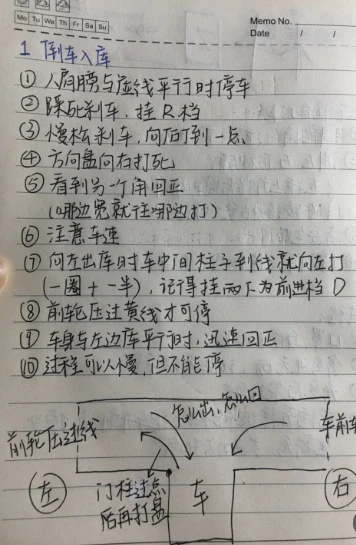 Memo No.
Mo Tu We Th Fr Sa Su
Date / /
1 倒车入库
① 人肩膀与虚线平行时停车
② 踩死刹车，挂R档
③ 慢松刹车，向后倒一点
④ 方向盘向右打死
⑤ 看到另一个角回正
（哪边宽就往哪边打）
⑥ 注意车速
⑦ 向左出库时车中间柱子到线就向左打
（一圈+一半），记得挂两下为前进档 D
⑧ 前轮压过黄线才可停
⑨ 车身与左边库平行时，迅速回正
⑩ 过程可以慢，但不能停
怎么出，怎么回
前轮压过线
车前
左
门柱过点
后再打盘
车
右